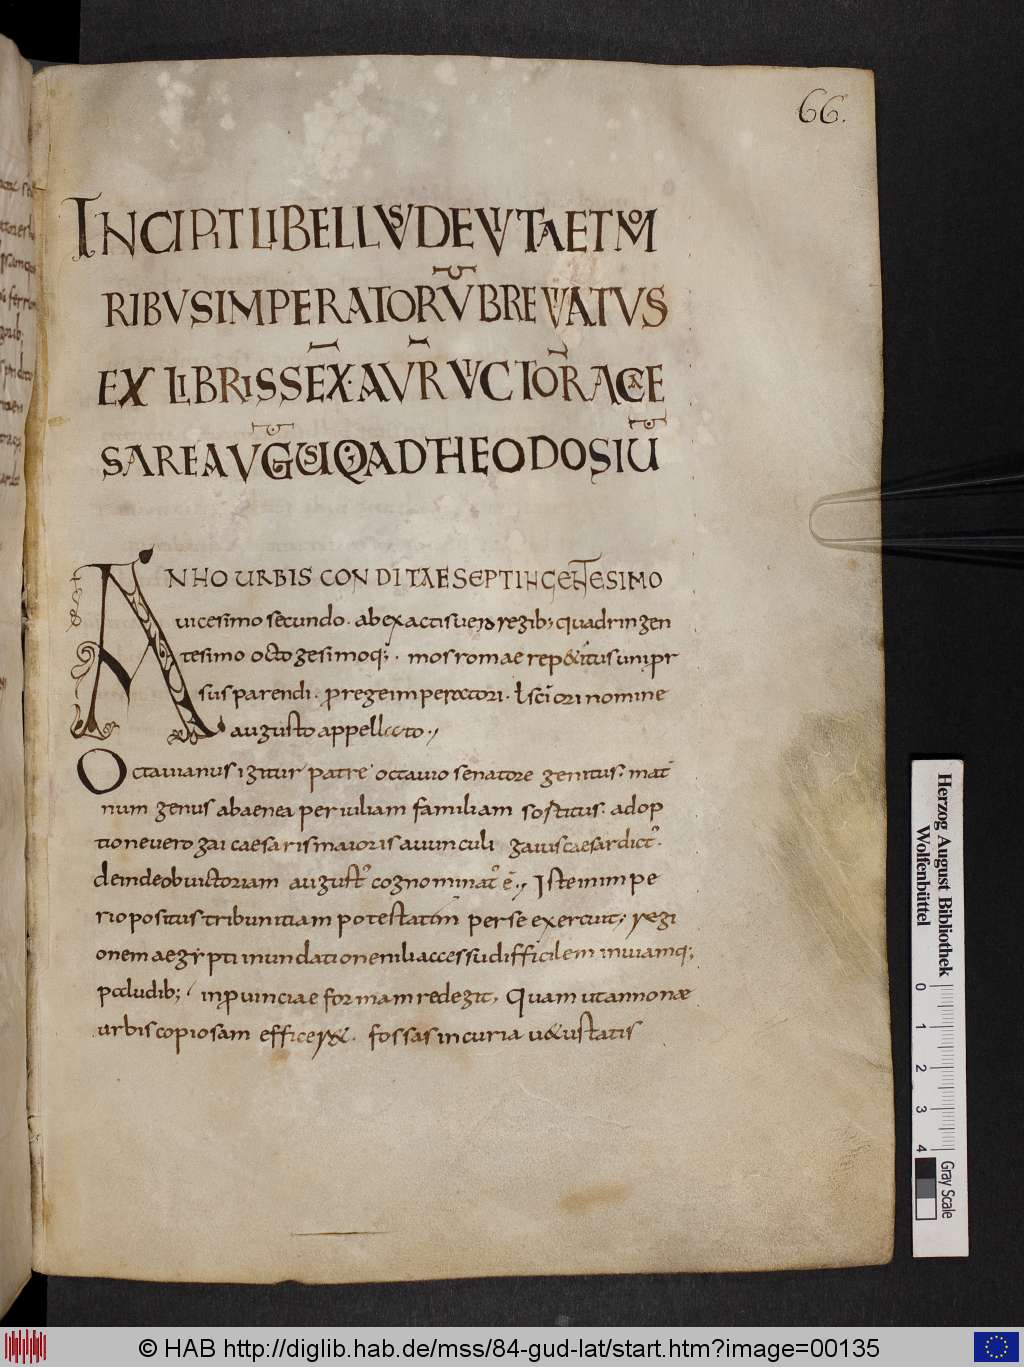 66.
INCIPIT LIBELLVS DE VITA ET MO
RIBVS IMPERATORṼ BREVIATVS
EX LIBRIS SEX̅· AVR̅ VICTORĨ A CAE
SARE AVG̅VSTI Q; AD THEODOSIŨ
ANNO URBIS CONDITAE SEPTINGENTESIMO
uicesimo secundo· ab exactis uero regib; quadringen
tesimo octogesimoq;· mos romae rep&itus uni pr
sus parendi· p rege imperatori· ł sc̅iori nomine
augusto appellato·,
Octauianus igitur patre octauio senatore genitus· mat̅
num genus ab aenea per iuliam familiam sostitus· adop
tione uero gai caesaris maioris auunculi gaius caesar dict'·
deinde ob uictoriam august' cognominat' ē·, Iste in impe
rio positus tribunitiam potestatem per se exercuit, regi
onem aegypti inundatione nili accessu difficilem inuiamq;
paludib; in prouinciae formam redegit, Quam ut annonae
urbis copiosam effice&· fossas incuria u&ustatis
Herzog August Bibliothek
Wolfenbüttel
0 1 2 3 4 Gray Scale
© HAB http://diglib.hab.de/mss/84-gud-lat/start.htm?image=00135